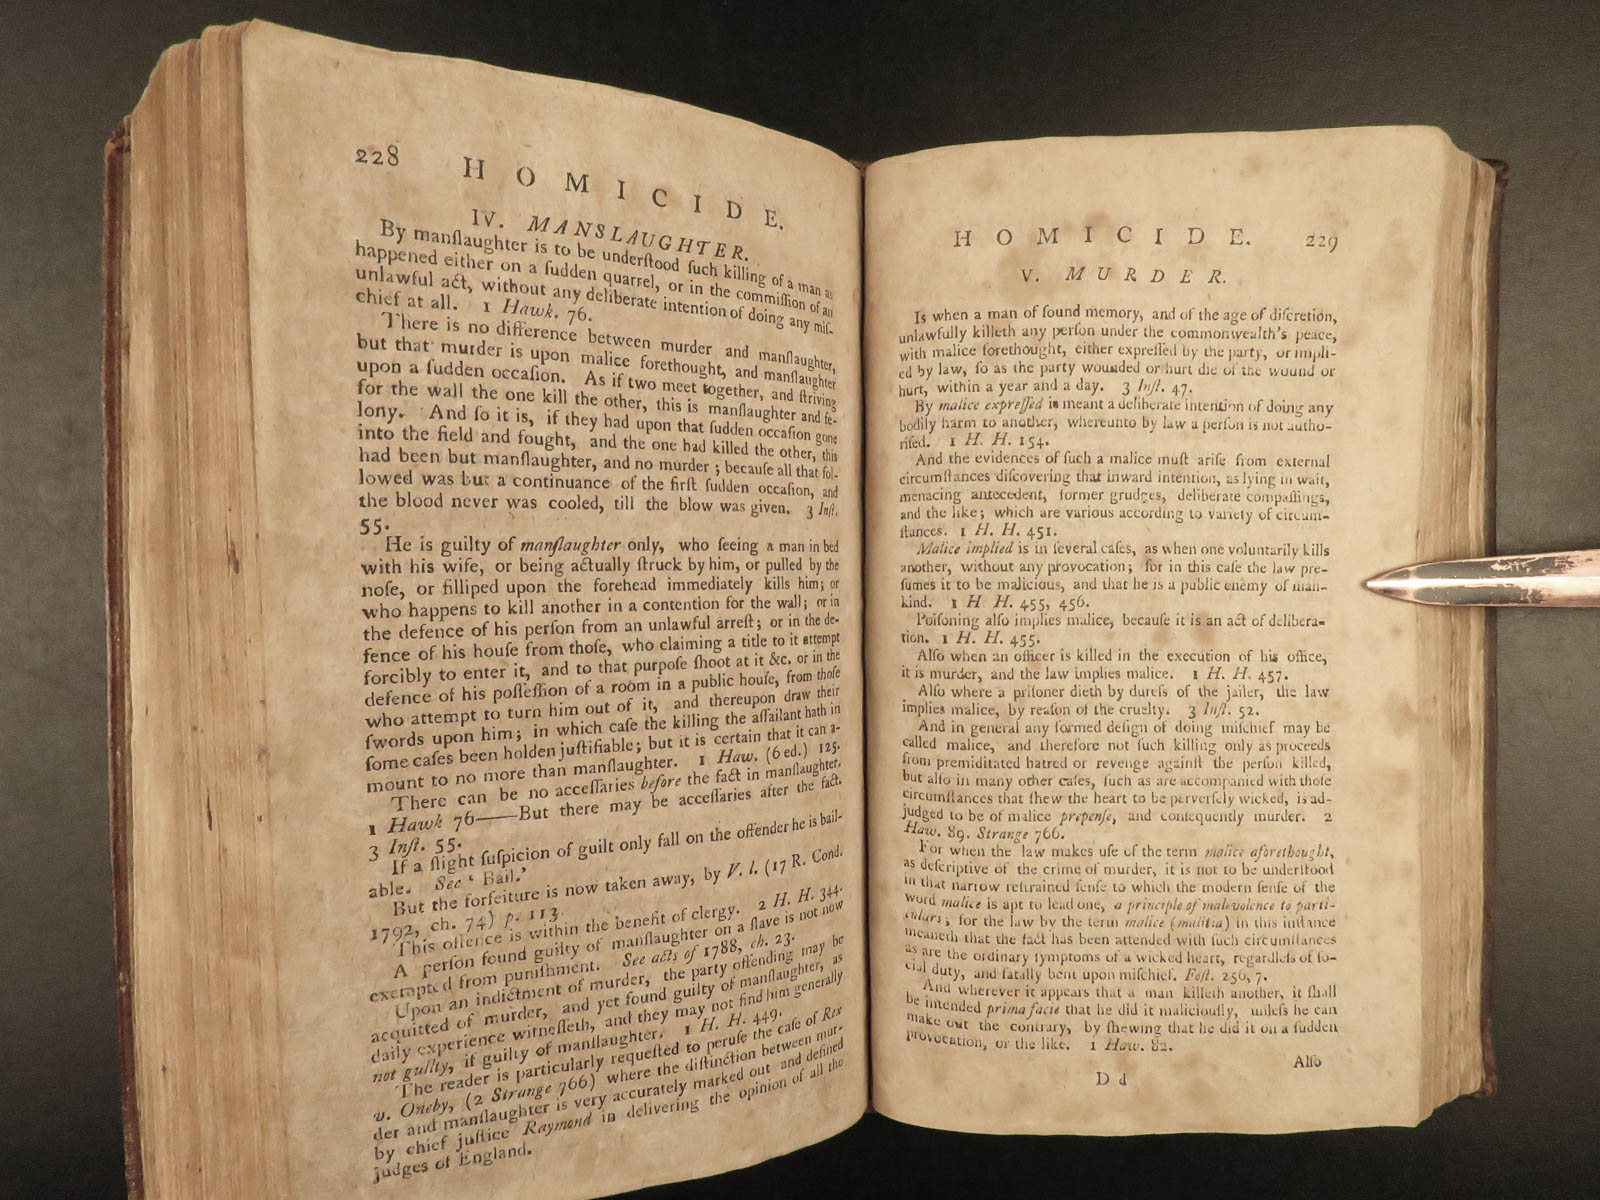 228 HOMICIDE.
IV. MANSLAUGHTER.
By manſlaughter is to be underſtood ſuch killing of a man as
happened either on a ſudden quarrel, or in the commiſſion of an
unlawful act, without any deliberate intention of doing any miſ-
chief at all. 1 Hawk. 76.
There is no difference between murder and manſlaughter,
but that murder is upon malice forethought, and manſlaughter
upon a ſudden occaſion. As if two meet together, and ſtriving
for the wall the one kill the other, this is manſlaughter and fe-
lony. And ſo it is, if they had upon that ſudden occaſion gone
into the field and fought, and the one had killed the other, this
had been but manſlaughter, and no murder; becauſe all that fol-
lowed was but a continuance of the firſt ſudden occaſion, and
the blood never was cooled, till the blow was given. 3 Inſt.
55.
He is guilty of manſlaughter only, who ſeeing a man in bed
with his wife, or being actually ſtruck by him, or pulled by the
noſe, or filliped upon the forehead immediately kills him; or
who happens to kill another in a contention for the wall; or in
the defence of his perſon from an unlawful arreſt; or in the de-
fence of his houſe from thoſe, who claiming a title to it attempt
forcibly to enter it, and to that purpoſe ſhoot at it &c. or in the
defence of his poſſeſſion of a room in a public houſe, from thoſe
who attempt to turn him out of it, and thereupon draw their
ſwords upon him; in which caſe the killing the aſſailant hath in
ſome caſes been holden juſtifiable; but it is certain that it can a-
mount to no more than manſlaughter. 1 Haw. (6 ed.) 125.
There can be no acceſſaries before the fact in manſlaughter.
1 Hawk 76——But there may be acceſſaries after the fact.
3 Inſt. 55.
If a ſlight ſuſpicion of guilt only fall on the offender he is bail-
able. See ‘ Bail.’
But the forfeiture is now taken away, by V. l. (17 R. Cond.
1792, ch. 74) p. 113.
This offence is within the benefit of clergy. 2 H. H. 344.
A perſon found guilty of manſlaughter on a ſlave is not now
exempted from puniſhment. See acts of 1788, ch. 23.
Upon an indictment of murder, the party offending may be
acquitted of murder, and yet found guilty of manſlaughter, as
daily experience witneſſeth, and they may not find him generally
not guilty, if guilty of manſlaughter. 1 H. H. 449.
The reader is particularly requeſted to peruſe the caſe of Rex
v. Oneby, (2 Strange 766) where the diſtinction between mur-
der and manſlaughter is very accurately marked out and defined
by chief juſtice Raymond in delivering the opinion of all the
judges of England.
HOMICIDE. 229
V. MURDER.
Is when a man of ſound memory, and of the age of diſcretion,
unlawfully killeth any perſon under the commonwealth's peace,
with malice forethought, either expreſſed by the party, or impli-
ed by law, ſo as the party wounded or hurt die of the wound or
hurt, within a year and a day. 3 Inſt. 47.
By malice expreſſed is meant a deliberate intention of doing any
bodily harm to another, whereunto by law a perſon is not autho-
riſed. 1 H. H. 154.
And the evidences of ſuch a malice muſt ariſe from external
circumſtances diſcovering that inward intention, as lying in wait,
menacing antecedent, former grudges, deliberate compaſſings,
and the like; which are various according to variety of circum-
ſtances. 1 H. H. 451.
Malice implied is in ſeveral caſes, as when one voluntarily kills
another, without any provocation; for in this caſe the law pre-
ſumes it to be malicious, and that he is a public enemy of man-
kind. 1 H H. 455, 456.
Poiſoning alſo implies malice, becauſe it is an act of delibera-
tion. 1 H. H. 455.
Alſo when an officer is killed in the execution of his office,
it is murder, and the law implies malice. 1 H. H. 457.
Alſo where a priſoner dieth by dureſs of the jailer, the law
implies malice, by reaſon of the cruelty. 3 Inſt. 52.
And in general any formed deſign of doing miſchief may be
called malice, and therefore not ſuch killing only as proceeds
from premiditated hatred or revenge againſt the perſon killed,
but alſo in many other caſes, ſuch as are accompanied with thoſe
circumſtances that ſhew the heart to be perverſely wicked, is ad-
judged to be of malice prepenſe, and conſequently murder. 2
Haw. 89. Strange 766.
For when the law makes uſe of the term malice aforethought,
as deſcriptive of the crime of murder, it is not to be underſtood
in that narrow reſtrained ſenſe to which the modern ſenſe of the
word malice is apt to lead one, a principle of malevolence to parti-
culars; for the law by the term malice (malitia) in this inſtance
meaneth that the fact has been attended with ſuch circumſtances
as are the ordinary ſymptoms of a wicked heart, regardleſs of ſo-
cial duty, and fatally bent upon miſchief. Foſt. 256, 7.
And wherever it appears that a man killeth another, it ſhall
be intended prima facie that he did it maliciouſly, unleſs he can
make out the contrary, by ſhewing that he did it on a ſudden
provocation, or the like. 1 Haw. 82.
D d Alſo